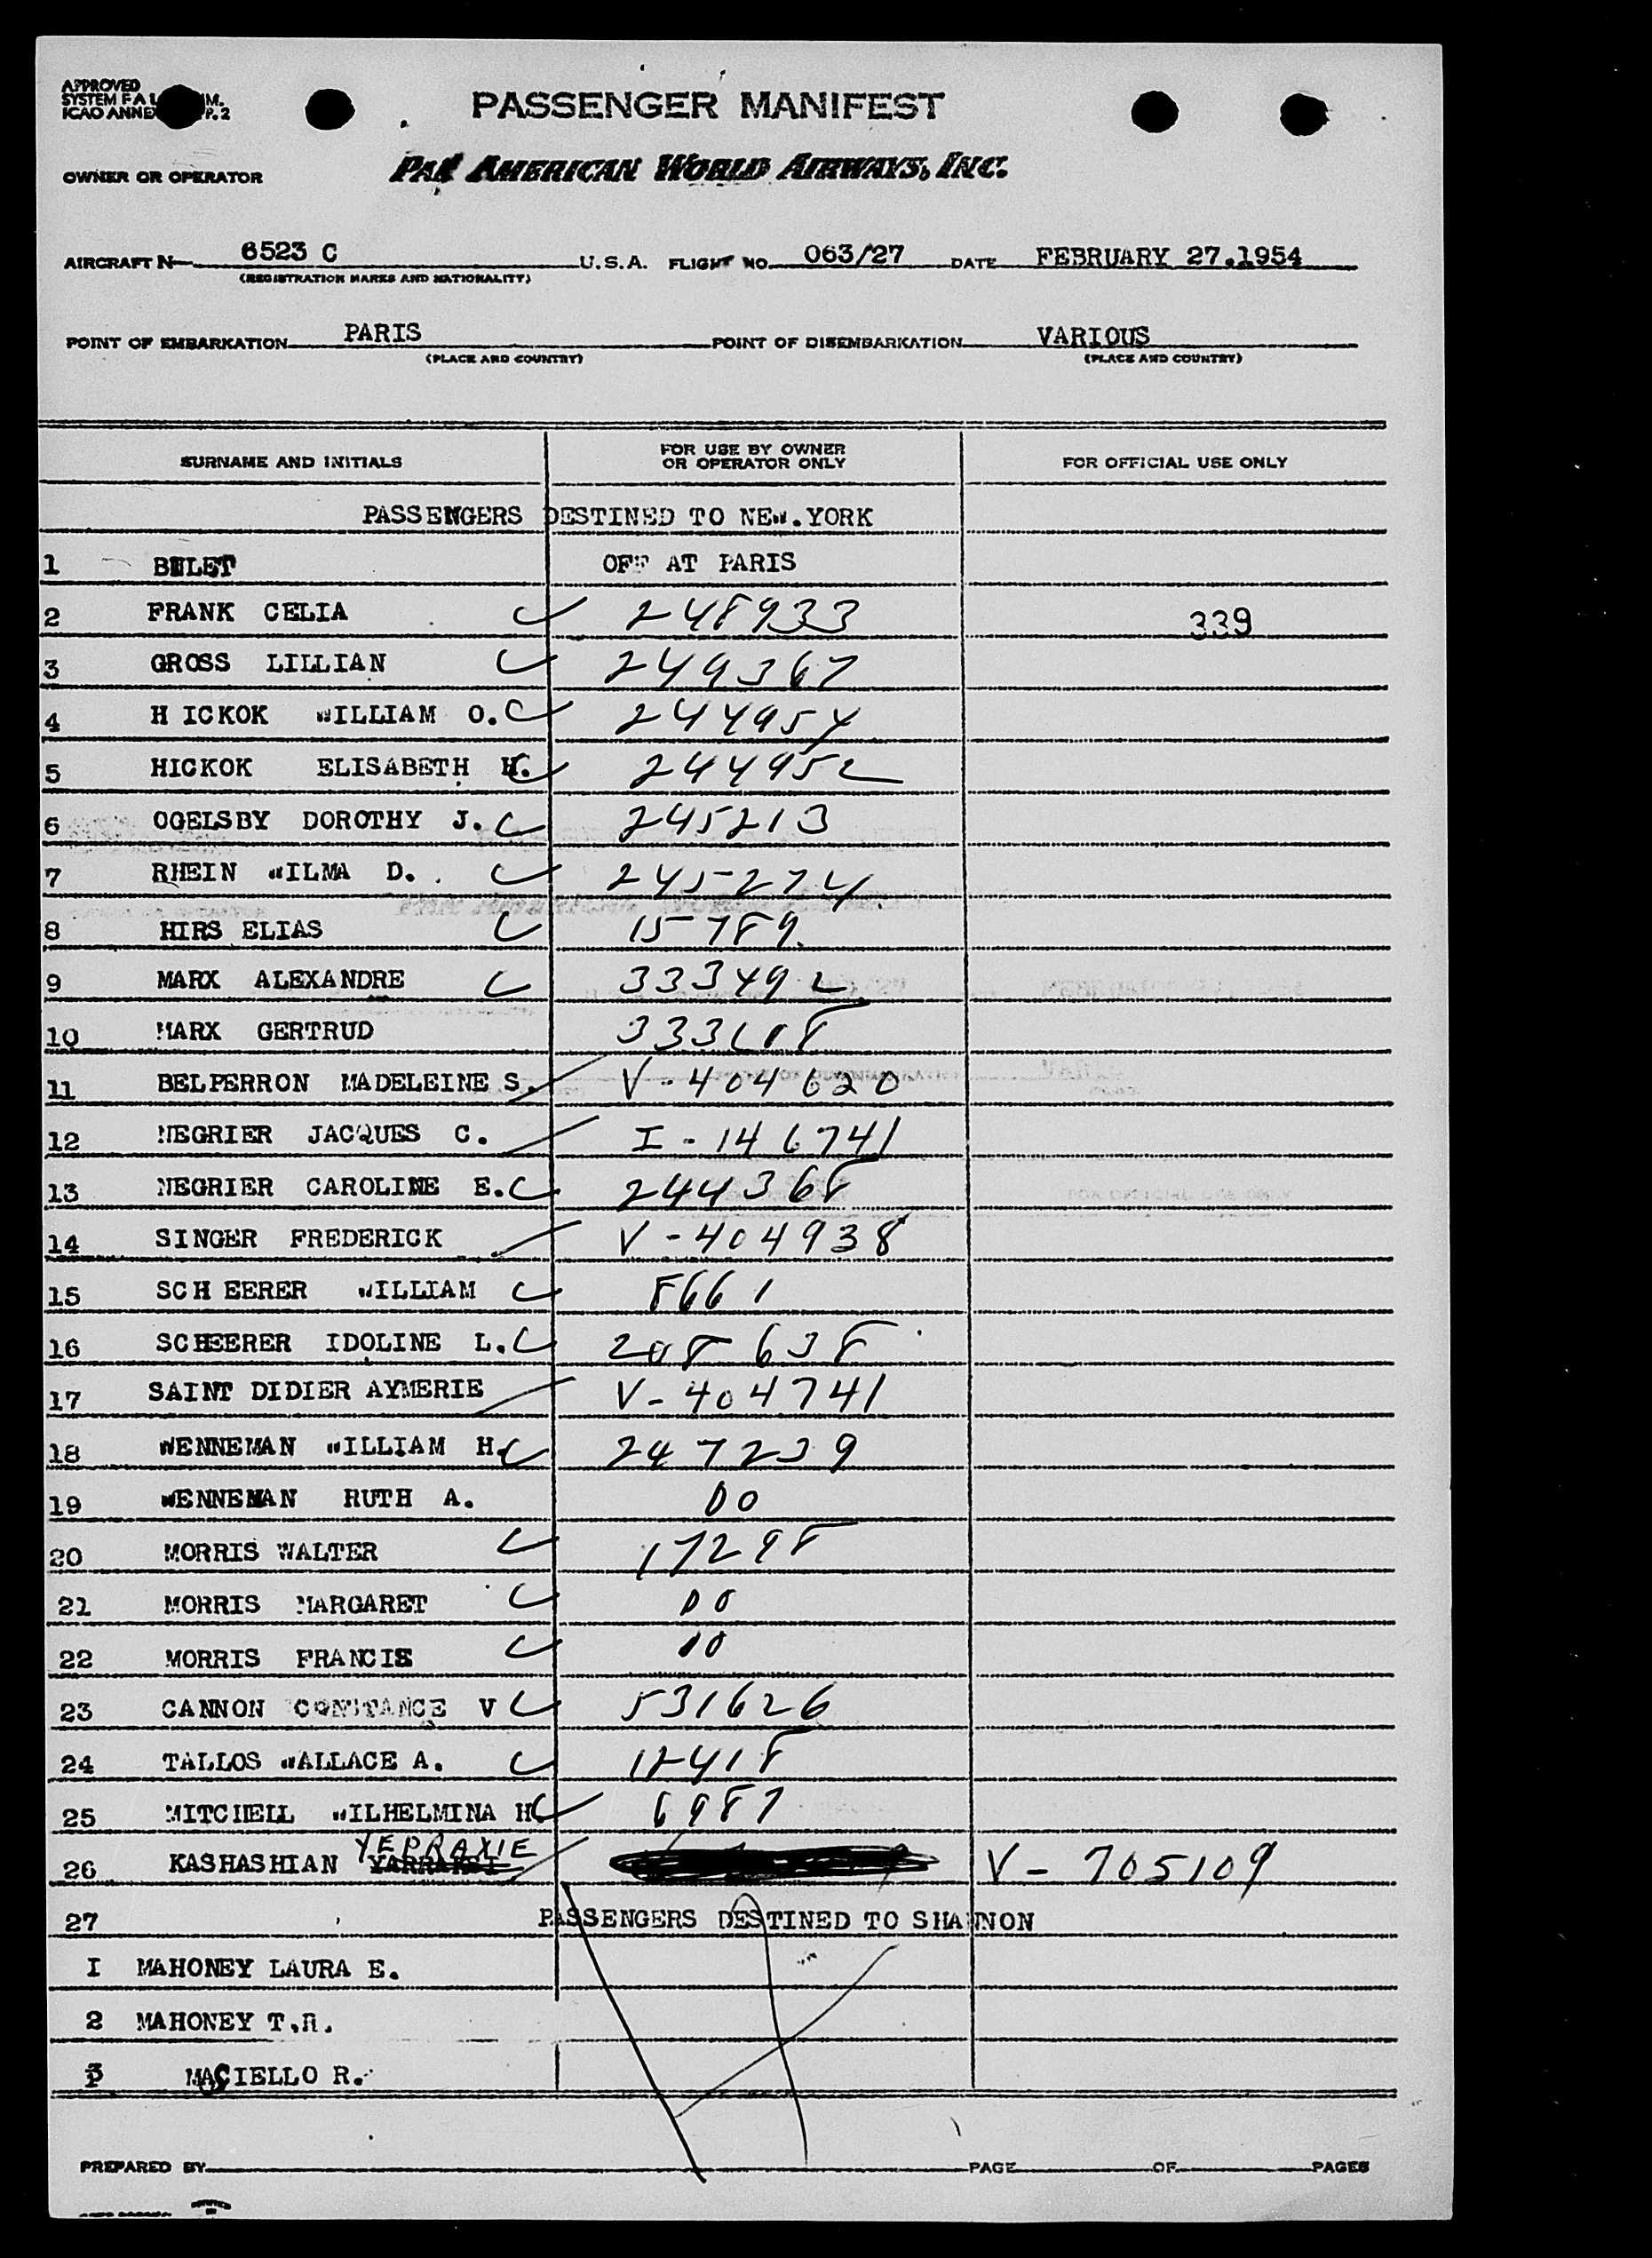 APPROVED
SYSTEM F A L M.
ICAO ANNEX P. 2
PASSENGER MANIFEST
OWNER OR OPERATOR PAN AMERICAN WORLD AIRWAYS, INC.
AIRCRAFT N 6523 C U.S.A. FLIGHT NO. 063/27 DATE FEBRUARY 27.1954
(REGISTRATION MARKS AND NATIONALITY)
POINT OF EMBARKATION PARIS POINT OF DISEMBARKATION VARIOUS
(PLACE AND COUNTRY) (PLACE AND COUNTRY)
SURNAME AND INITIALS FOR USE BY OWNER OR OPERATOR ONLY FOR OFFICIAL USE ONLY
PASSENGERS DESTINED TO NEW.YORK
1 BELET OFF AT PARIS
2 FRANK CELIA 248933 339
3 GROSS LILLIAN 249367
4 H ICKOK WILLIAM O. 244954
5 HICKOK ELISABETH H. 244952
6 OGELSBY DOROTHY J. 245213
7 RHEIN WILMA D. 245274
8 HIRS ELIAS 15789
9 MARX ALEXANDRE 333492
10 MARX GERTRUD
11 BELPERRON MADELEINE S. V-404620
12 NEGRIER JACQUES C. I-146741
13 NEGRIER CAROLINE E. 244368
14 SINGER FREDERICK V-404938
15 SCH EERER WILLIAM 8661
16 SCHEERER IDOLINE L. 208638
17 SAINT DIDIER AYMERIE V-404741
18 WENNEMAN WILLIAM H. 247239
19 WENNEMAN RUTH A. DO
20 MORRIS WALTER 17298
21 MORRIS MARGARET DO
22 MORRIS FRANCIS DO
23 CANNON CONSTANCE V 531626
24 TALLOS WALLACE A. 12418
25 MITCHELL WILHELMINA H 6987
YEPRAXIE
26 KASHASHIAN V-705109
27 PASSENGERS DESTINED TO SHANNON
I MAHONEY LAURA E.
2 MAHONEY T.R.
3 MACIELLO R.
PREPARED BY PAGE OF PAGES